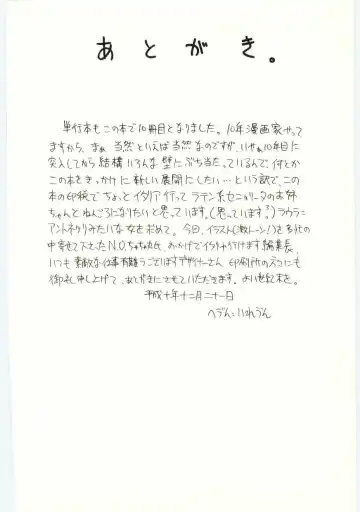 あとがき。
単行本もこの本で10冊目となりました。10年漫画家やって
ますから、まぁ当然といえば当然なのですが、いやぁ10年目に
突入してから結構いろんな壁にぶち当たっているんで、何とか
この本をきっかけに新しい展開にしたい…という訳で、この
本の印税でちょっとイタリア行ってラテン系セニョリータのお姉
ちゃんとねんごろになりたいと思っています。(思っています?)ラウラ=
アントネッリみたいな女をもとめて。今回、イラスト(激トーン!)を多忙の
中寄せて下さったN.O.ちゃん氏、おかげでイタリヤ行けます編集長、
いつも素敵な仕事有難うございますデザイナーさん、印刷所の方々にも
御礼申し上げて、あとがきにさせていただきます。よい世紀末を。
平成十年十二月二十一日
へヴん=